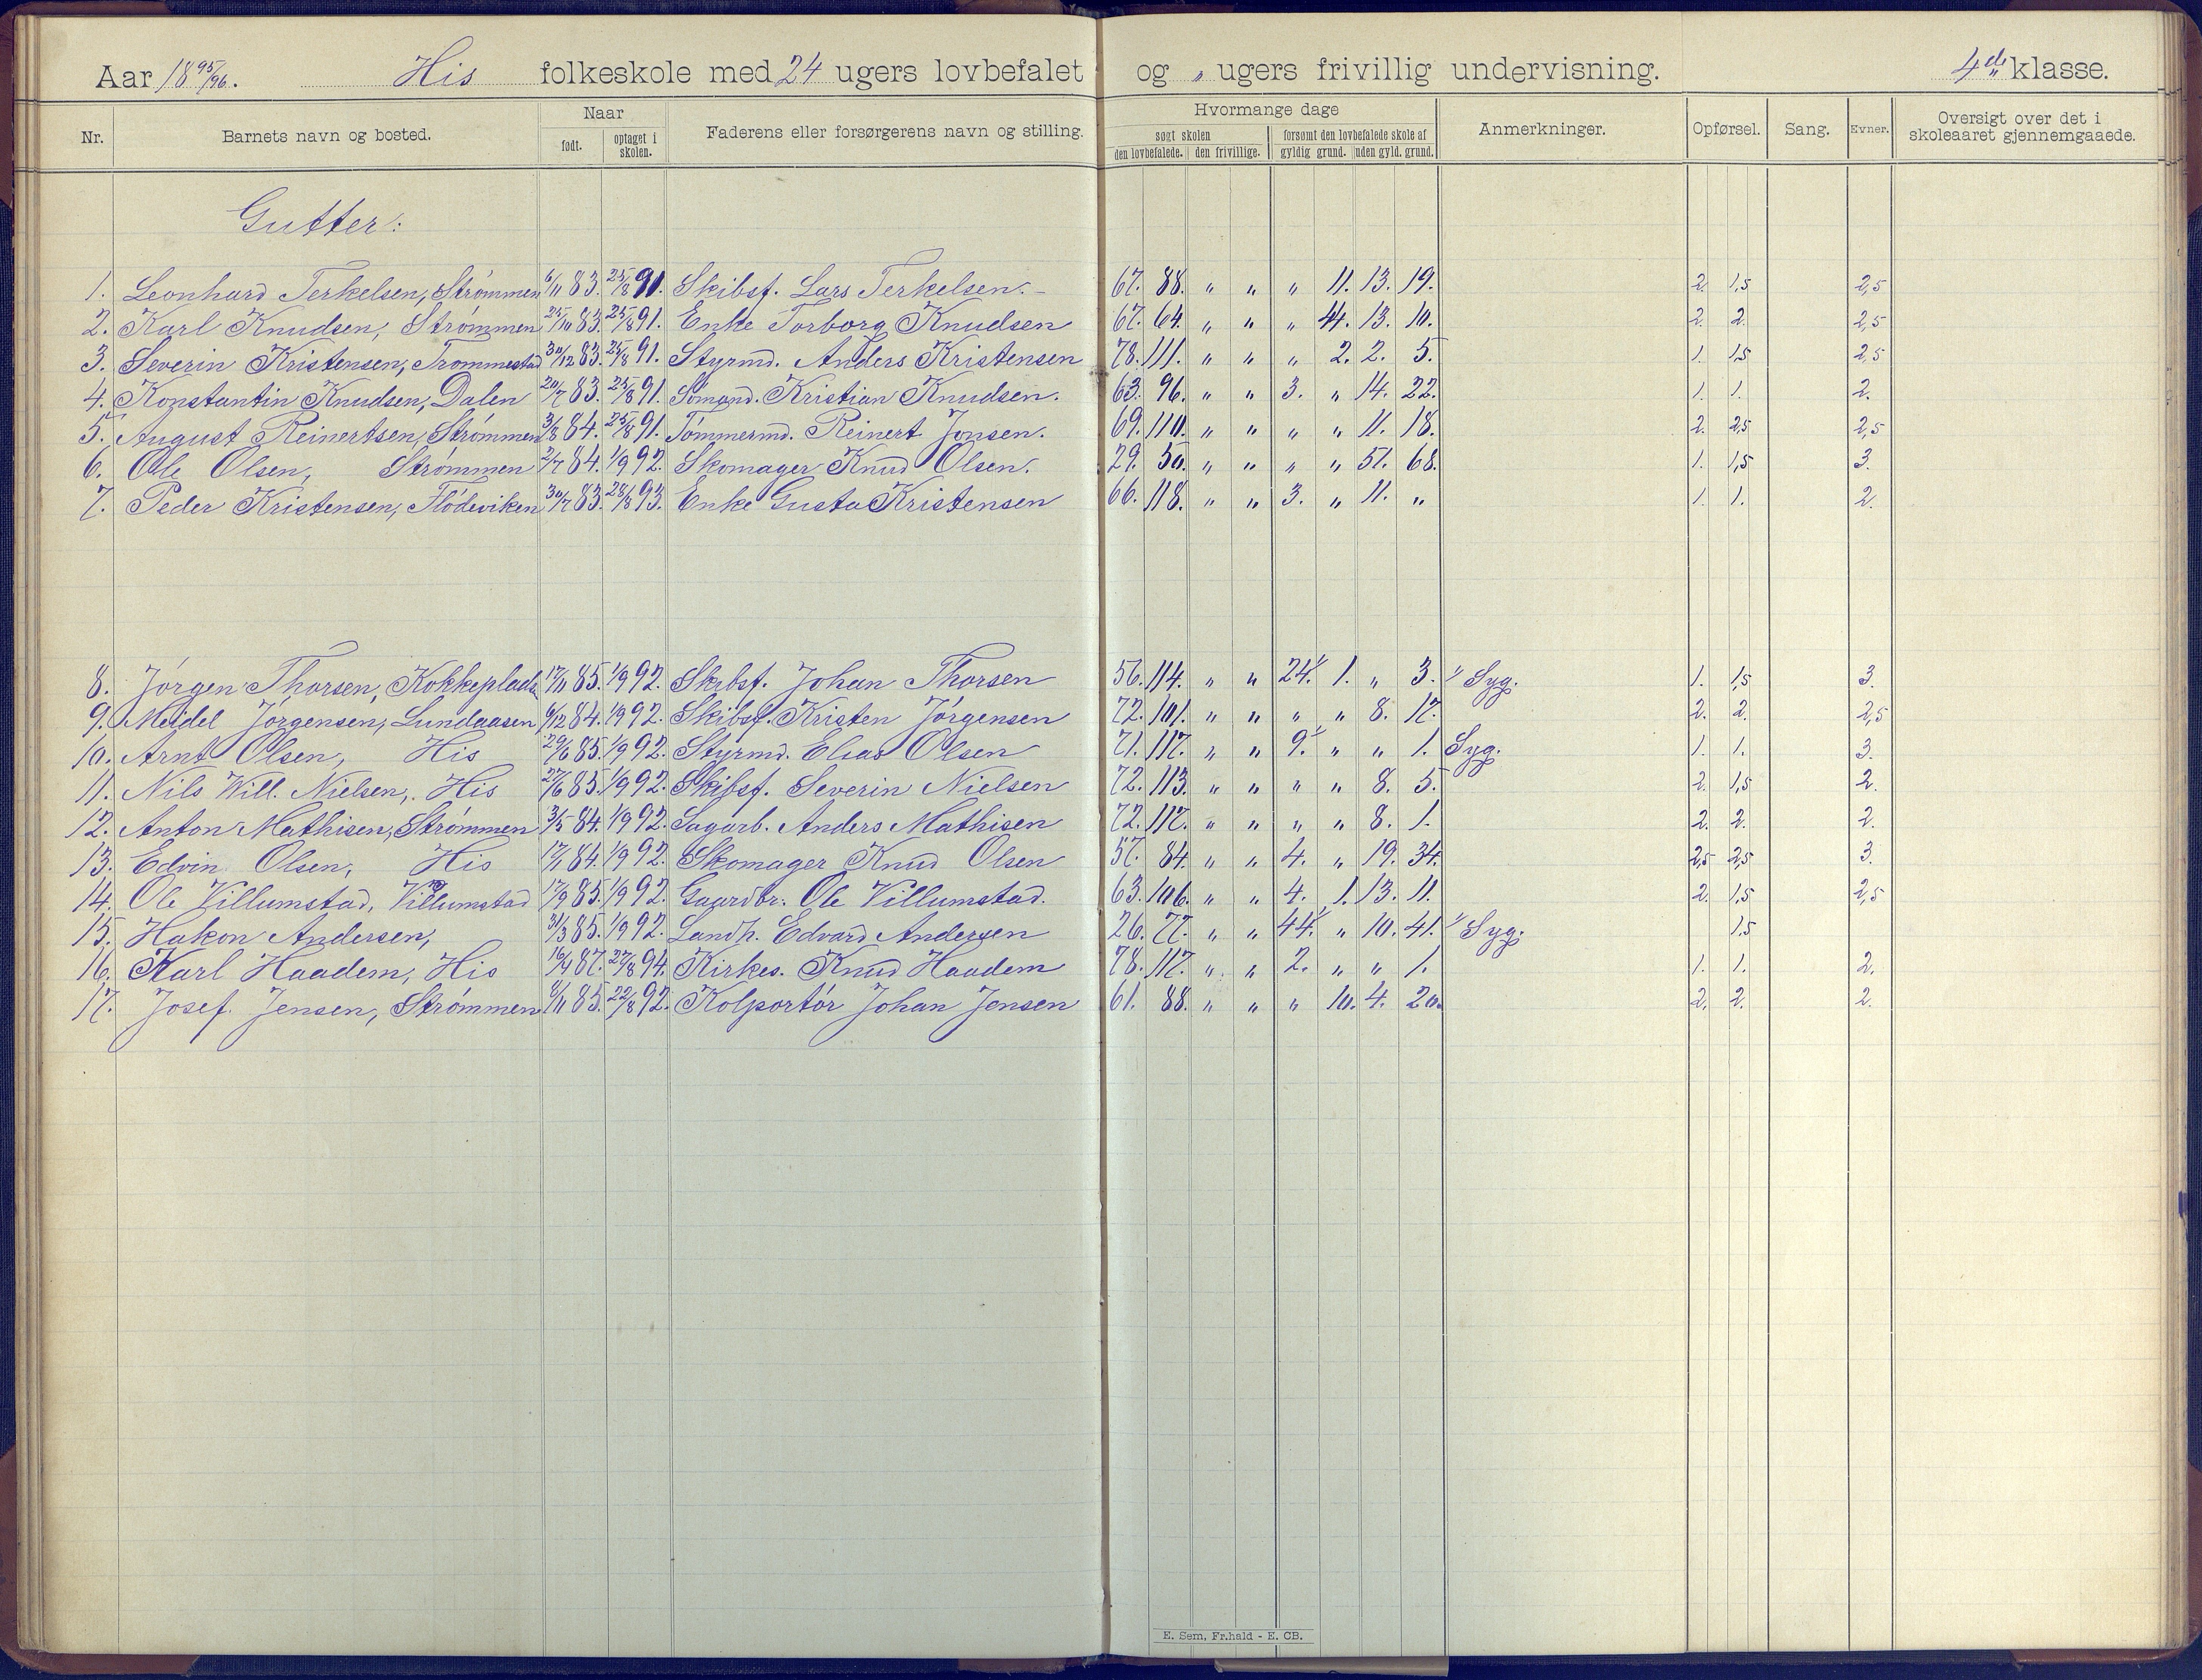 Aar 18 95/96. His folkeskole med 24 ugers lovbefalet og „ ugers frivillig undervisning. 4de klasse.
Nr. Barnets navn og bosted. Naar Faderens eller forsørgerens navn og stilling. Hvormange dage Anmerkninger. Opførsel. Sang. Evner. Oversigt over det i skoleaaret gjennemgaaede.
født. optaget i skolen. søgt skolen forsømt den lovbefalede skole af
den lovbefalede. den frivillige. gyldig grund. uden gyld. grund.
Gutter:
1. Leonhard Terkelsen, Strømmen 6/11 83. 25/8 91. Skibsf. Lars Terkelsen. 67. 88. „ „ „ 11. 13. 19. 2. 1,5 2,5
2. Karl Knudsen, Strømmen 25/10 83. 25/8 91. Enke Torborg Knudsen 67. 64. „ „ „ 44. 13. 10. 2. 2. 2,5
3. Severin Kristensen, Trommestad 30/12 83. 25/8 91. Styrmd. Anders Kristensen 78. 111. „ „ „ 2. 2. 5. 1. 1,5 2,5
4. Konstantin Knudsen, Dalen 20/7 83. 25/8 91. Sömand. Kristian Knudsen. 63. 96. „ „ 3. „ 14. 22. 1. 1. 2.
5. August Reinertsen, Strømmen 3/8 84. 25/8 91. Tømmermd. Reinert Jonsen. 69. 110. „ „ „ „ 11. 18. 2. 2,5 2,5
6. Ole Olsen, Strømmen 2/7 84. 1/9 92. Skomager Knud Olsen. 29. 50. „ „ „ „ 51. 68. 1. 1,5 3.
7. Peder Kristensen, Flødeviken 30/7 83. 28/8 93. Enke Gusta Kristensen 66. 118. „ „ 3. „ 11. „ 1. 1. 2.
8. Jørgen Thorsen, Kokkeplads 17/11 85. 1/9 92. Skibsf. Johan Thorsen 56. 114. „ „ 24. 1. „ 3. Syg. 1. 1,5 3.
9. Meidel Jørgensen, Lundaasen 6/12 84. 1/9 92. Skibsf. Kristen Jørgensen 72. 101. „ „ „ „ 8. 17. 2. 2. 2,5
10. Arnt Olsen, His 29/6 85. 1/9 92. Styrmd. Elias Olsen 71. 117. „ „ 9. „ „ 1. Syg. 1. 1. 3.
11. Nils Will. Nielsen, His 27/6 85. 1/9 92. Skibsf. Severin Nielsen 72. 113. „ „ „ „ 8. 5. 2. 1,5 2.
12. Anton Mathisen, Strømmen 3/5 84. 1/9 92. Sagarb. Anders Mathisen 72. 117. „ „ „ „ 8. 1. 2. 2. 2.
13. Edvin Olsen, His 17/1 84. 1/9 92. Skomager Knud Olsen 57. 84. „ „ 4. „ 19. 34. 2,5 2,5 3.
14. Ole Villumstad, Villumstad 17/9 85. 1/9 92. Gaardbr. Ole Villumstad. 63. 106. „ „ 4. 1. 13. 11. 2. 1,5 2,5
15. Hakon Andersen, 31/3 85. 1/9 92. Landh. Edvard Andersen 26. 77. „ „ 44. „ 10. 41. Syg. 1,5
16. Karl Haadem, His 16/4 87. 27/8 94. Kirkes. Knud Haadem 78. 117. „ „ 2. „ „ 1. 1. 1. 2.
17. Josef Jensen, Strømmen 8/11 85. 22/8 92. Kolportør Johan Jensen 61. 88. „ „ „ 10. 4. 20. 2. 2. 2.
E. Sem, Fr.hald - E. CB.